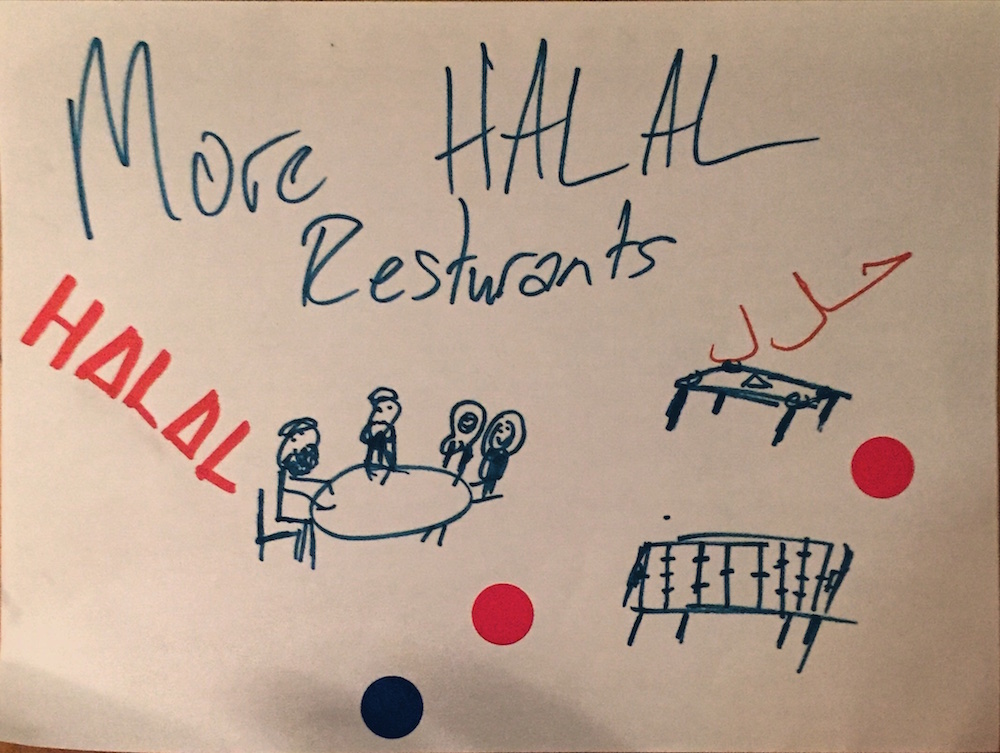 More HALAL
Resturants
HALAL
حلال